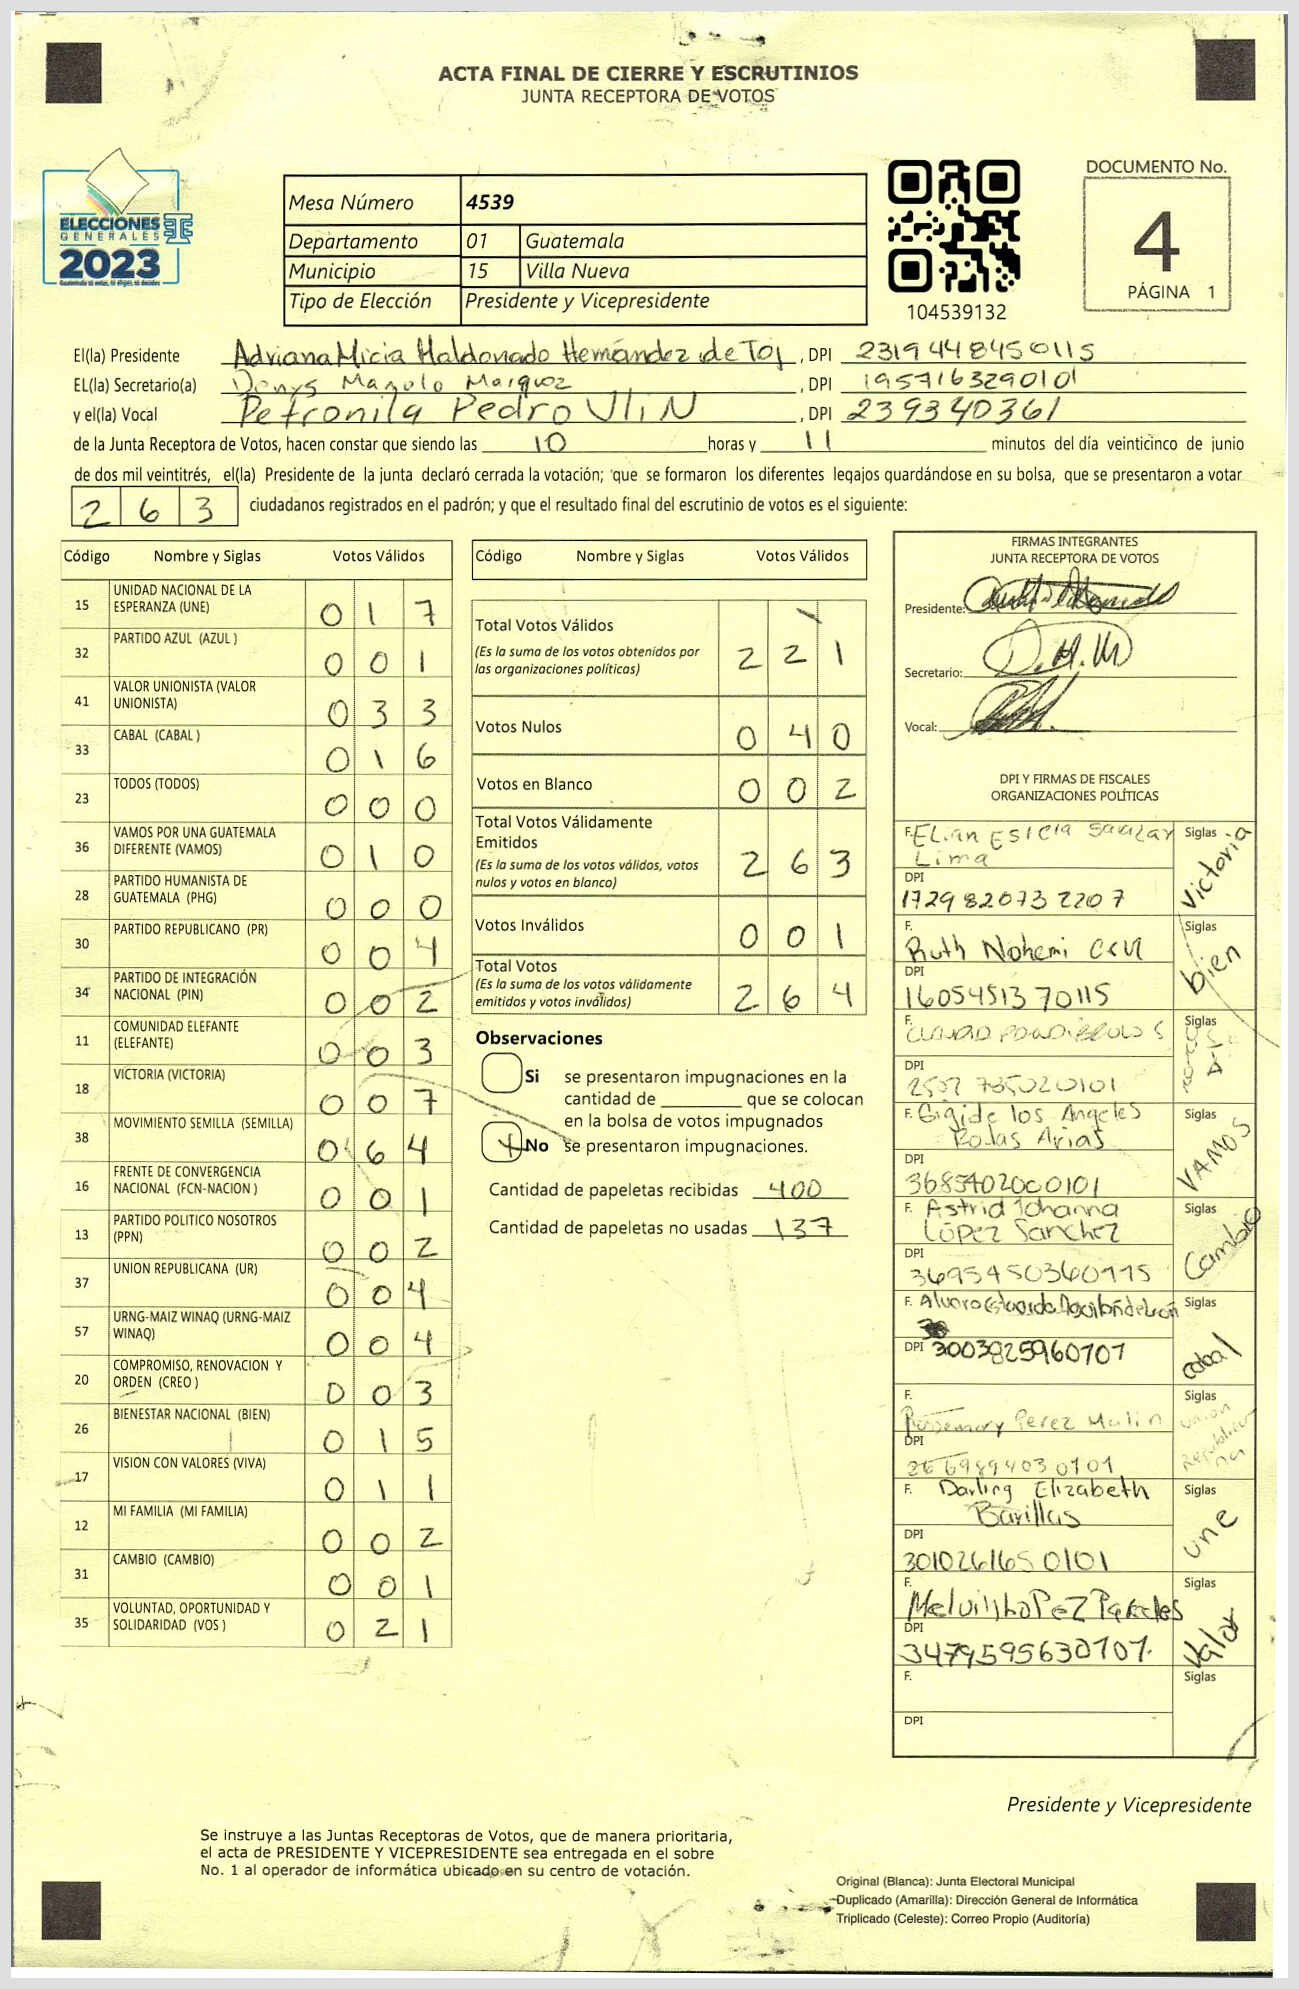 ACTA FINAL DE CIERRE Y ESCRUTINIOS
JUNTA RECEPTORA DE VOTOS
ELECCIONES
GENERALES
2023
Mesa Número 4539
Departamento 01 Guatemala
Municipio 15 Villa Nueva
Tipo de Elección Presidente y Vicepresidente
104539132
DOCUMENTO No.
4
PÁGINA 1
El(la) Presidente Adriana Micia Maldonado Hernández de Toj, DPI 2319448450115
EL(la) Secretario(a) Denys Manolo Marquez, DPI 1957163290101
y el(la) Vocal Petronila Pedro Ulin, DPI 239340361
de la Junta Receptora de Votos, hacen constar que siendo las 10 horas y 11 minutos del día veinticinco de junio
de dos mil veintitrés, el(la) Presidente de la junta declaró cerrada la votación; que se formaron los diferentes legajos guardándose en su bolsa, que se presentaron a votar
263 ciudadanos registrados en el padrón; y que el resultado final del escrutinio de votos es el siguiente:
Código Nombre y Siglas Votos Válidos
15 UNIDAD NACIONAL DE LA ESPERANZA (UNE) 017
32 PARTIDO AZUL (AZUL ) 001
41 VALOR UNIONISTA (VALOR UNIONISTA) 033
33 CABAL (CABAL ) 016
23 TODOS (TODOS) 000
36 VAMOS POR UNA GUATEMALA DIFERENTE (VAMOS) 010
28 PARTIDO HUMANISTA DE GUATEMALA (PHG) 000
30 PARTIDO REPUBLICANO (PR) 004
34 PARTIDO DE INTEGRACIÓN NACIONAL (PIN) 002
11 COMUNIDAD ELEFANTE (ELEFANTE) 003
18 VICTORIA (VICTORIA) 007
38 MOVIMIENTO SEMILLA (SEMILLA) 064
16 FRENTE DE CONVERGENCIA NACIONAL (FCN-NACION ) 001
13 PARTIDO POLITICO NOSOTROS (PPN) 002
37 UNION REPUBLICANA (UR) 004
57 URNG-MAIZ WINAQ (URNG-MAIZ WINAQ) 004
20 COMPROMISO, RENOVACION Y ORDEN (CREO ) 003
26 BIENESTAR NACIONAL (BIEN) 015
17 VISION CON VALORES (VIVA) 011
12 MI FAMILIA (MI FAMILIA) 002
31 CAMBIO (CAMBIO) 001
35 VOLUNTAD, OPORTUNIDAD Y SOLIDARIDAD (VOS ) 021
Código Nombre y Siglas Votos Válidos
Total Votos Válidos 221
(Es la suma de los votos obtenidos por
las organizaciones políticas)
Votos Nulos 040
Votos en Blanco 002
Total Votos Válidamente
Emitidos 263
(Es la suma de los votos válidos, votos
nulos y votos en blanco)
Votos Inválidos 001
Total Votos 264
(Es la suma de los votos válidamente
emitidos y votos inválidos)
Observaciones
Si se presentaron impugnaciones en la
cantidad de ________ que se colocan
en la bolsa de votos impugnados
No se presentaron impugnaciones.
Cantidad de papeletas recibidas 400
Cantidad de papeletas no usadas 137
FIRMAS INTEGRANTES
JUNTA RECEPTORA DE VOTOS
Presidente:
Secretario:
Vocal:
DPI Y FIRMAS DE FISCALES
ORGANIZACIONES POLÍTICAS
F. Salazar Lima Siglas Victoria
DPI 1729820732207
F. Ruth Nohemi Siglas bien
DPI 1605451370115
F. Siglas
DPI 2507785020101
F. Gigide los Angeles Rojas Arias Siglas VAMOS
DPI 3685402000101
F. Astrid Johanna López Sanchez Siglas Cambio
DPI 3695450360115
F. Siglas cabal
DPI 3003825960101
F. Rossemary Perez Siglas union Republicana
DPI 2669894030101
F. Darling Elizabeth Barillas Siglas une
DPI 3010261650101
F. Siglas Valor
DPI 3479595630101
F. Siglas
DPI
Presidente y Vicepresidente
Se instruye a las Juntas Receptoras de Votos, que de manera prioritaria,
el acta de PRESIDENTE Y VICEPRESIDENTE sea entregada en el sobre
No. 1 al operador de informática ubicado en su centro de votación.
Original (Blanca): Junta Electoral Municipal
Duplicado (Amarilla): Dirección General de Informática
Triplicado (Celeste): Correo Propio (Auditoría)